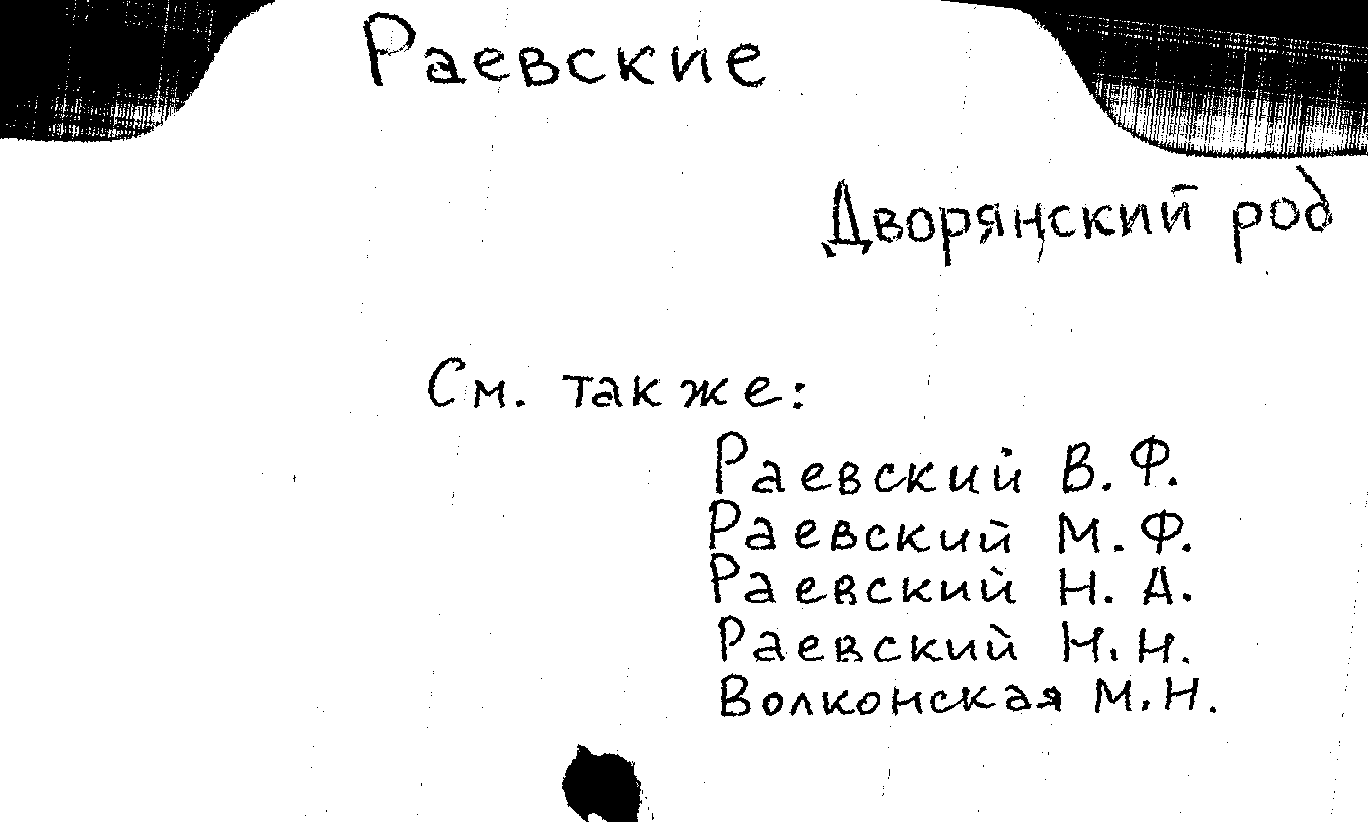 Раевские
Дворянский род
См. также:
Раевский В. Ф.
Раевский М. Ф.
Раевский Н. А.
Раевский Н. Н.
Волконская М. Н.